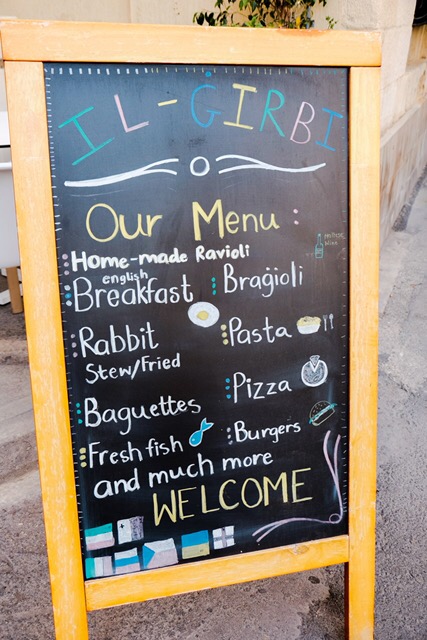 IL-ĠIRBI
Our Menu:
Home-made Ravioli
english
Breakfast
Braġioli
Rabbit
Stew/Fried
Pasta
Pizza
Baguettes
Burgers
Fresh fish
and much more
WELCOME